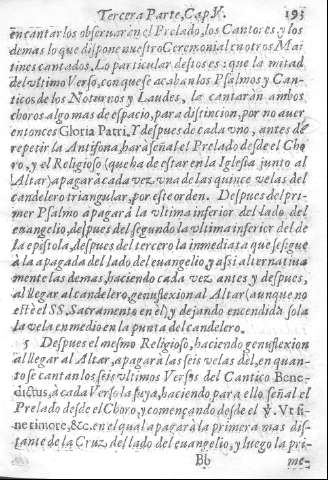 Tercera Parte, Cap. V. 193
en cantar los obseruarán el Prelado, los Cantores, y los
demas lo que dispone nuestro Ceremonial en otros Mai
tines cantados. Lo particular destos es: que la mitad
del vltimo Verso, con que se acaban los Psalmos y Can-
ticos de los Noturnos y Laudes, la cantarán ambos
choros algo mas de espacio, para distincion, por no auer
entonces Gloria Patri. Y despues de cada vno, antes de
repetir la Antifona, hará señal el Prelado desde el Cho
ro, y el Religioso (que ha de estar en la Iglesia junto al
Altar) apagará cada vez vna de las quince velas del
candelero triangular, por este orden. Despues del pri-
mer Psalmo apagará la vltima inferior del lado del
euangelio, despues del segundo la vltima inferior del de
la epistola, despues del tercero la inmediata que se sigue
à la apagada del lado del euangelio, y assi alternatiua
mente las demas, haciendo cada vez, antes y despues,
al llegar al candelero, genuflexion al Altar (aunque no
estè el SS. Sacramento en èl) y dejando encendida sola
la vela en medio en la punta del candelero.
5 Despues el mesmo Religioso, haciendo genuflexion
al llegar al Altar, apagará las seis velas del, en quan-
to se cantan los seis vltimos Versos del Cantico Bene-
dictus, à cada Verso la suya, haciendo para ello señal el
Prelado desde el Choro, y començando desde el ℣. Vt si-
ne timore, &c. en el qual apagará la primera mas dis-
tante de la Cruz del lado del euangelio, y luego la pri-
Bb me-